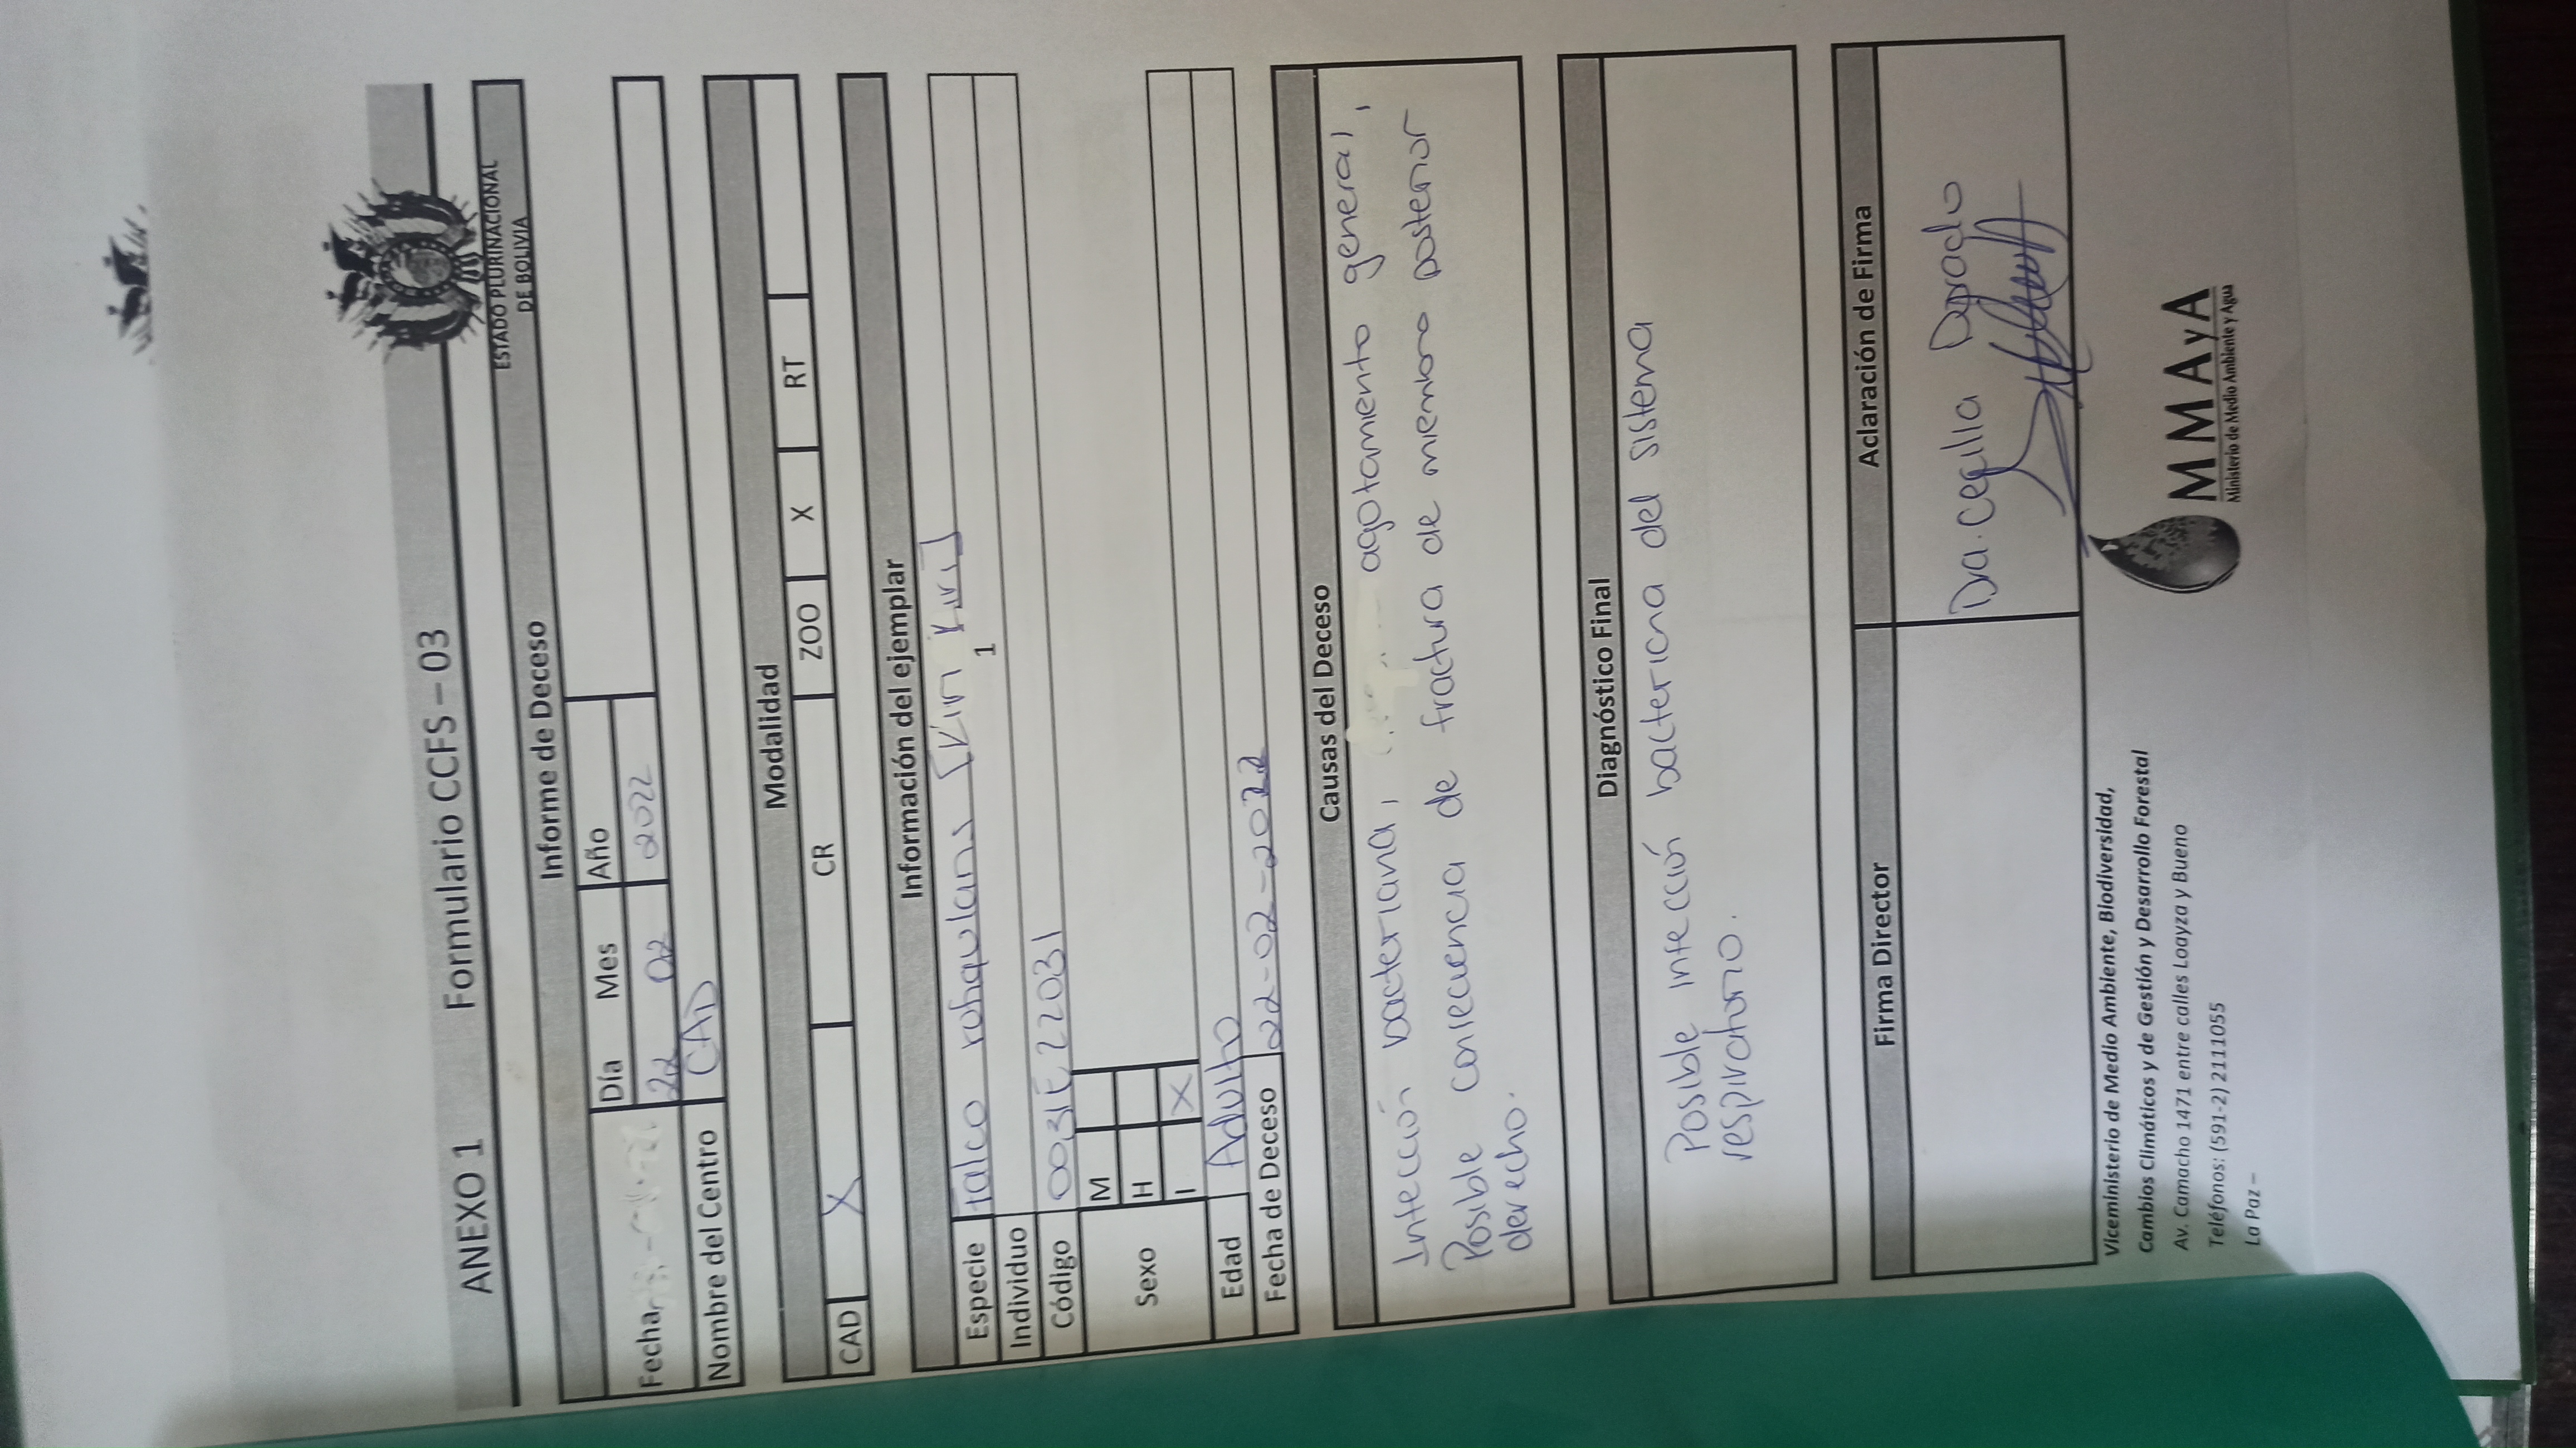 ANEXO 1 Formulario CCFS – 03
ESTADO PLURINACIONAL
DE BOLIVIA
Informe de Deceso
Fecha Día Mes Año
22 02 2022
Nombre del Centro CAD
Modalidad
CAD X CR ZOO X RT
Información del ejemplar
Especie Falco [Kiri Kiri]
Individuo 1
Código 0031E22031
Sexo M
H
I X
Edad Adulto
Fecha de Deceso 22-02-2022
Causas del Deceso
Infección bacteriana, agotamiento general,
Posible consecuencia de fractura de miembro posterior
derecho.
Diagnóstico Final
Posible infección bacteriana del sistema
respiratorio.
Firma Director Aclaración de Firma
Dra. Cecilia Dorado
Viceministerio de Medio Ambiente, Biodiversidad,
Cambios Climáticos y de Gestión y Desarrollo Forestal
Av. Camacho 1471 entre calles Loayza y Bueno
Teléfonos: (591-2) 2111055
La Paz –
MMAyA
Ministerio de Medio Ambiente y Agua